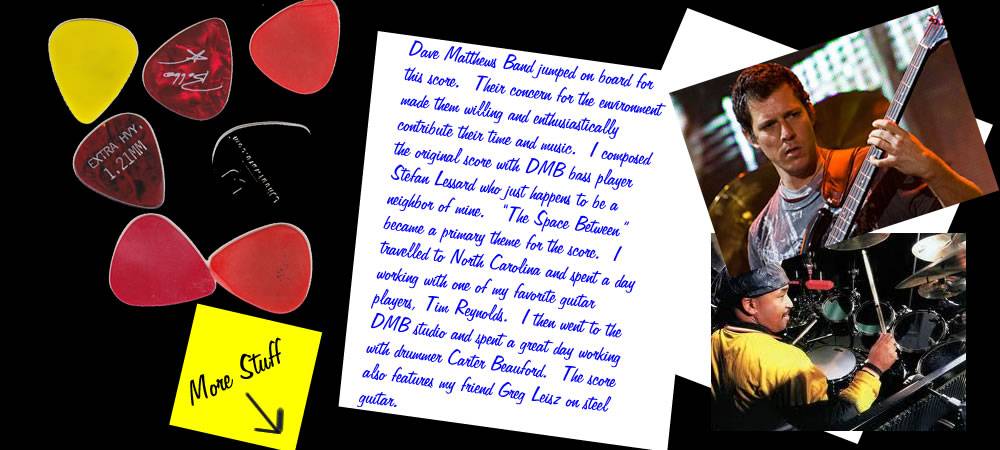 EXTRA HVY.
1.21MM
Dave Matthews Band jumped on board for
this score. Their concern for the environment
made them willing and enthusiastically
contribute their time and music. I composed
the original score with DMB bass player
Stefan Lessard who just happens to be a
neighbor of mine. "The Space Between"
became a primary theme for the score. I
travelled to North Carolina and spent a day
working with one of my favorite guitar
players, Tim Reynolds. I then went to the
DMB studio and spent a great day working
with drummer Carter Beauford. The score
also features my friend Greg Leisz on steel
guitar.
More Stuff